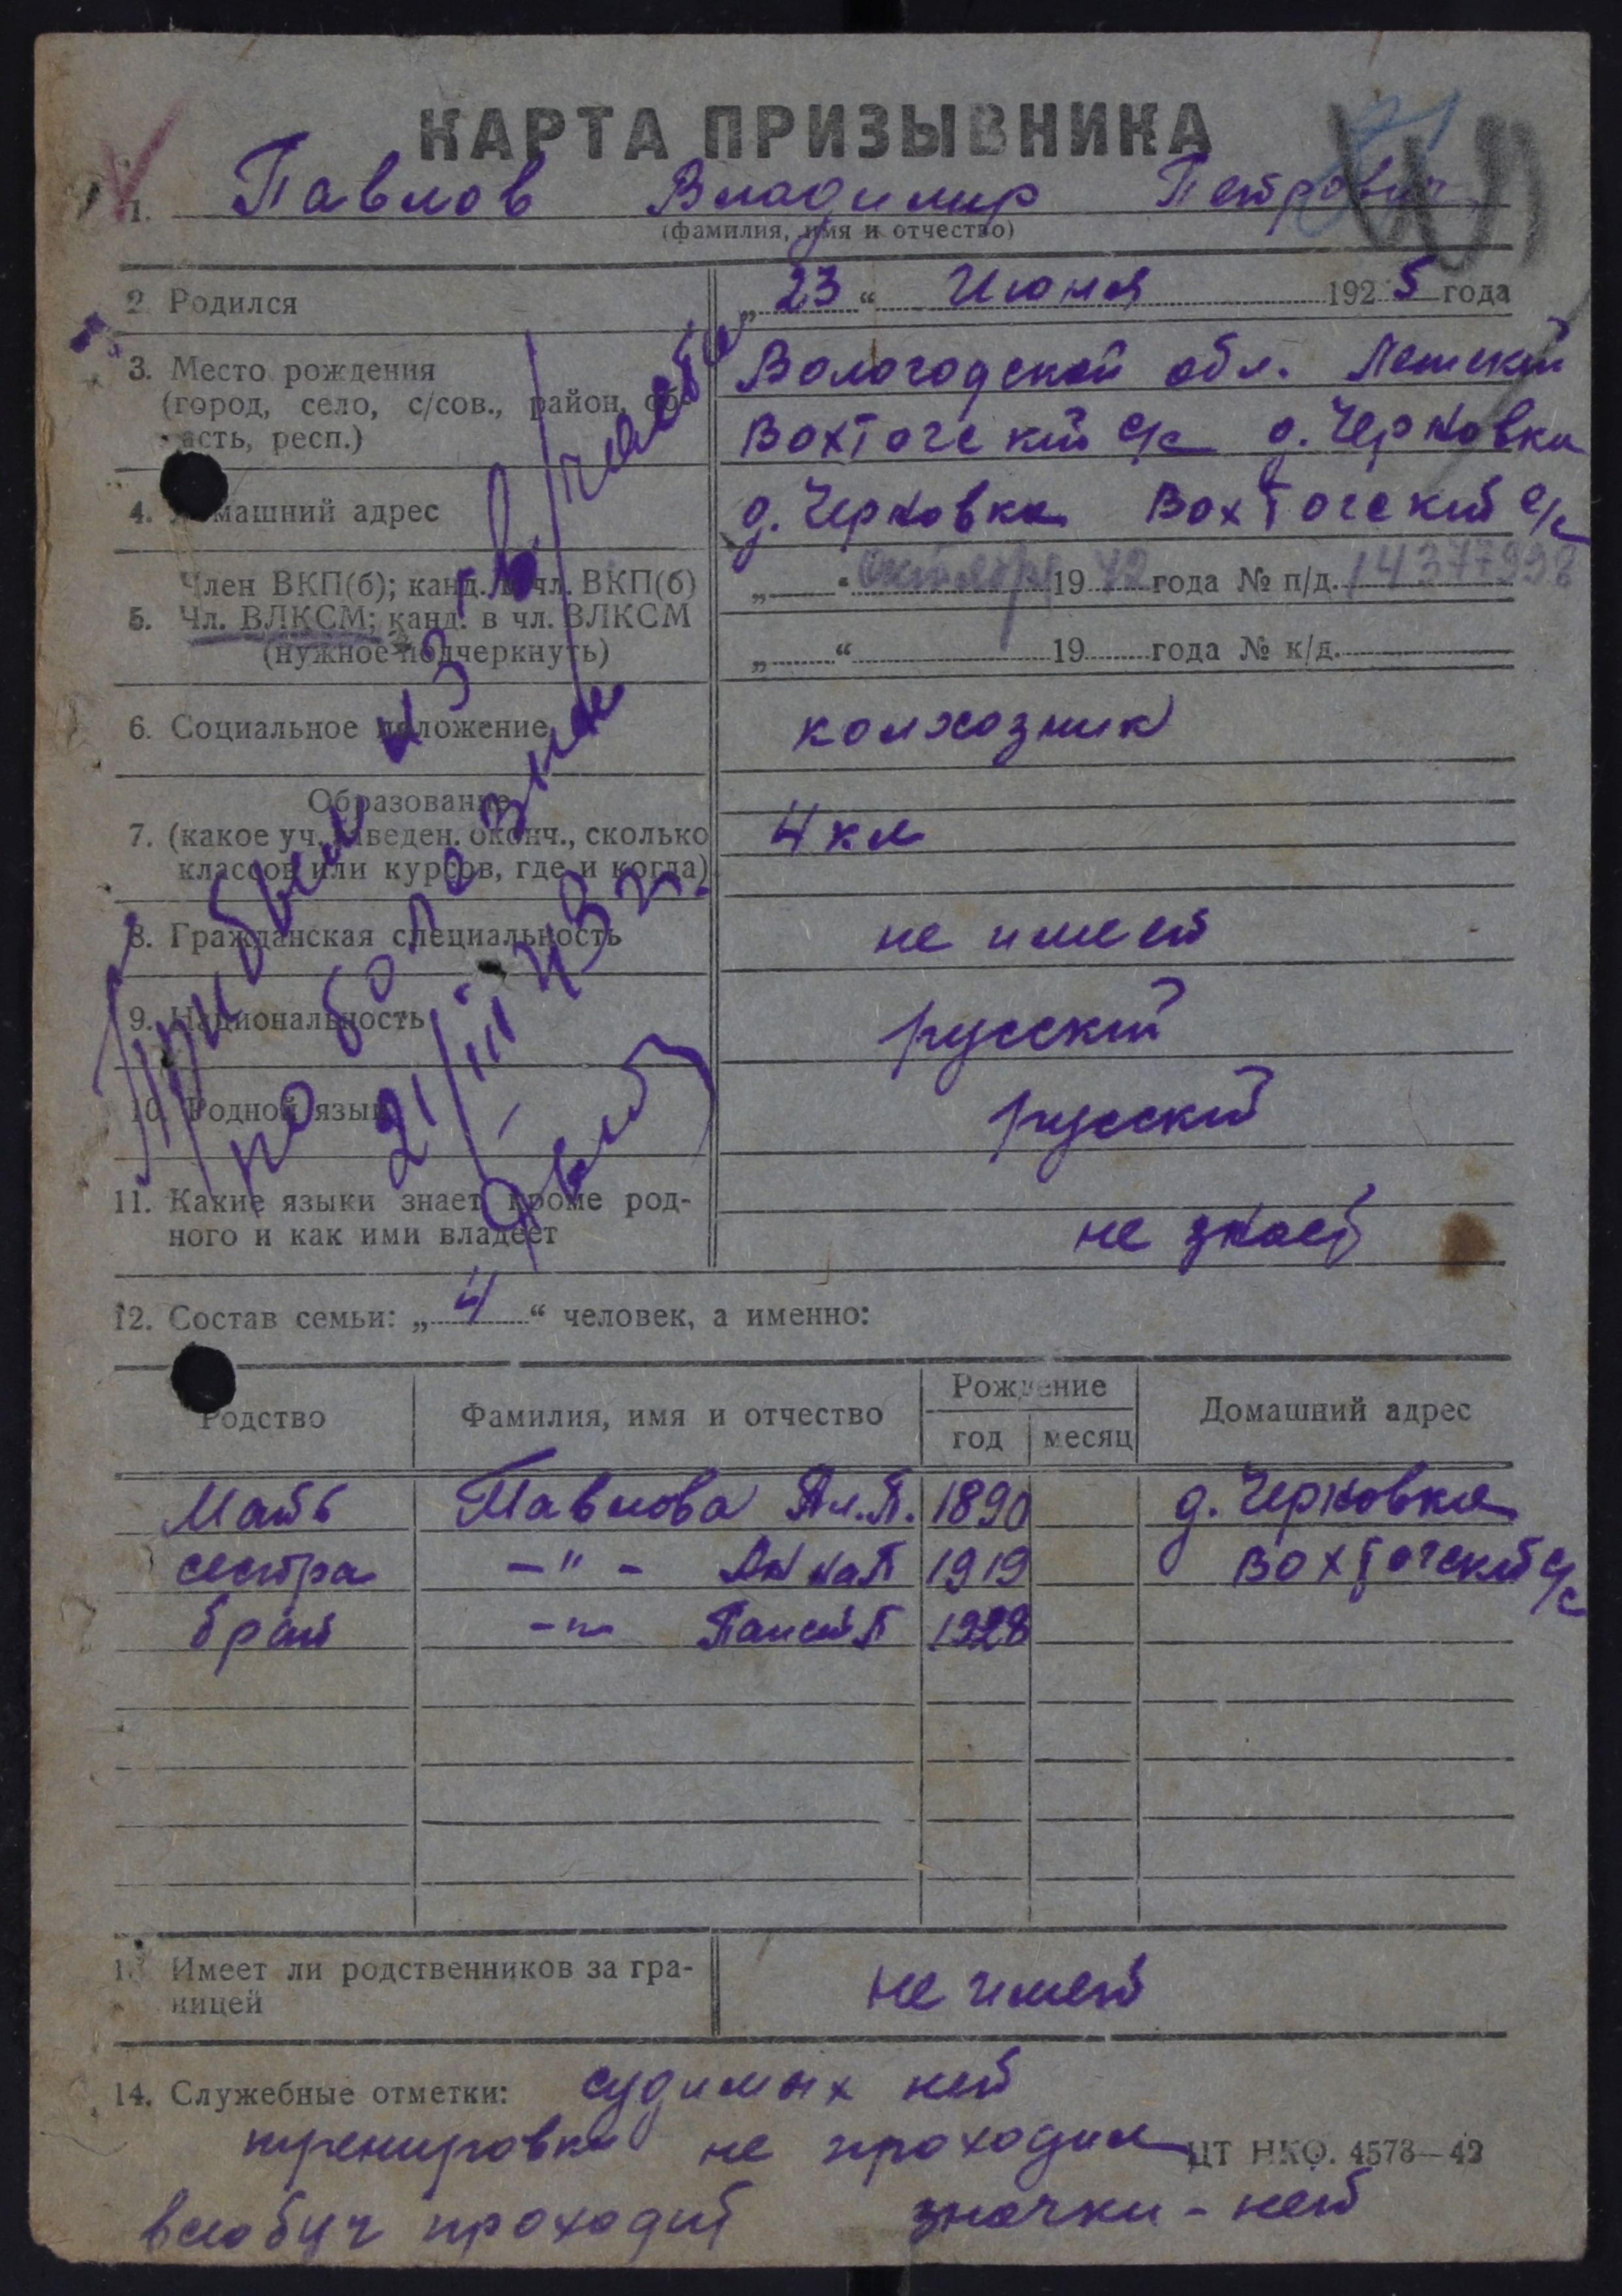 КАРТА ПРИЗЫВНИКА
1. Павлов Владимир Петрович
(фамилия, имя и отчество)
2. Родился „23“ Июня 1925 года
3. Место рождения
(город, село, с/сов., район, об-
ласть, респ.)
Вологодской обл. Лежский
Вохтогский с/с д. Черновка
4. Домашний адрес д. Черновка Вохтогский с/с
Член ВКП(б); канд. в чл. ВКП(б) „ “ октября 1942 года № п/д. 14377998
5. Чл. ВЛКСМ; канд. в чл. ВЛКСМ
(нужное подчеркнуть) „ “ 19 года № к/д.
6. Социальное положение колхозник
Образование
7. (какое уч. заведен. оконч., сколько 4 кл
классов или курсов, где и когда)
8. Гражданская специальность не имеет
9. Национальность русский
10. Родной язык русский
11. Какие языки знает кроме род-
ного и как ими владеет не знает
Прибыл из в/части
по болезни
21/III 43 г.
12. Состав семьи: „4“ человек, а именно:
Родство Фамилия, имя и отчество Рождение Домашний адрес
год месяц
Мать Павлова Ал.П. 1890 д. Черновка
сестра -"- Анна П 1919 Вохтогский с/с
брат -"- П 1928
13. Имеет ли родственников за гра-
ницей не имеет
14. Служебные отметки: судимых нет
тренировки не проходил
ЦТ НКО. 4573—42
всеобуч проходит значки - нет